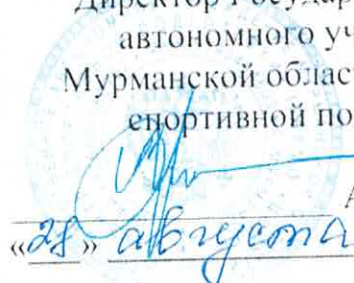 Директор Государ
автономного уч
Мурманской облас
спортивной по
А
«28» августа